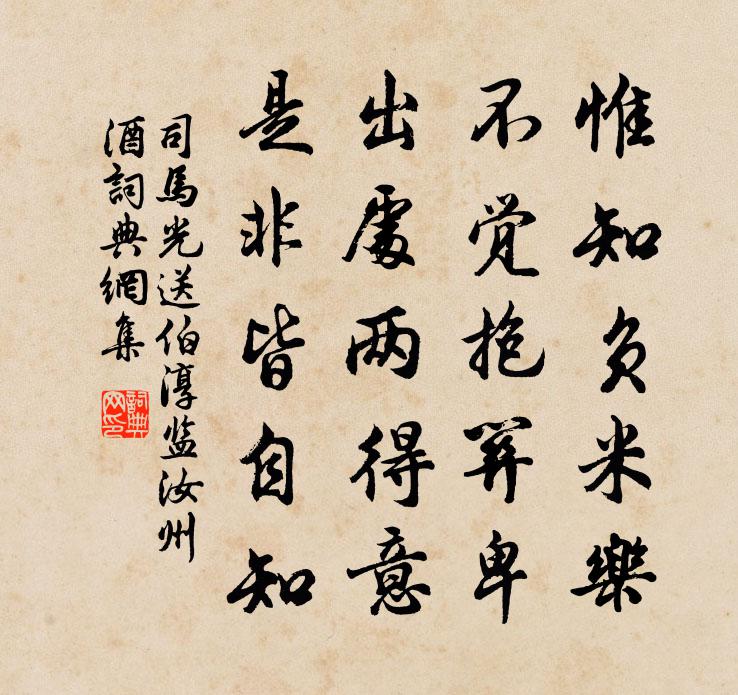 惟知负米樂
不觉抱関卑
出處两得意
是非皆自知
司馬光送伯淳监汝州
酒詞典網集
詞典
网印